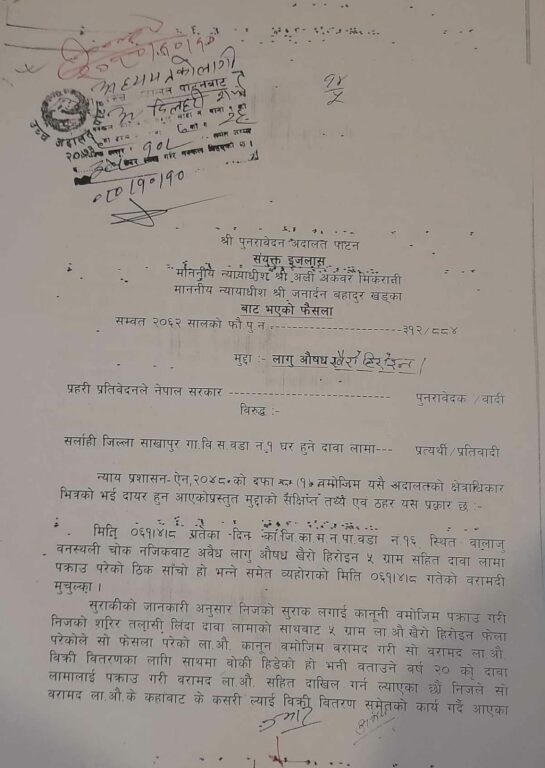 अध्ययनको लागी
उच्च अदालत
श्री पुनरावेदन अदालत पाटन
संयुक्त इजलास
माननीय न्यायाधीश श्री अली अकवर मिकरानी
माननीय न्यायाधीश श्री जनार्दन बहादुर खड्का
बाट भएको फैसला
सम्वत २०६२ सालको फौ पु न -------------------------३१२/८८४
मुद्दा :- लागु औषध खैरो हिरोइन ।
प्रहरी प्रतिवेदनले नेपाल सरकार ------------------------------ पुनरावेदक /वादी
विरुद्ध :-
सर्लाही जिल्ला साखापुर गा.वि स.वडा न.१ घर हुने दावा लामा--- प्रत्यर्थी/प्रतिवादी
न्याय प्रशासन-ऐन,२०४८.को दफा वमोजिम यसै अदालतको क्षेत्राधिकार
भित्रको भई दायर हुन आएकोप्रस्तुत मुद्दाको संक्षिप्त तथ्य एवं ठहर यस प्रकार छ :-
मिति ०६१।४।८ गतेका दिन का.जि.का म.न.पा.वडा न.१६ स्थित वालाजु
वनस्थली चोक नजिकबाट अवैध लागु औषध खैरो हिरोइन ५ ग्राम सहित दावा लामा
पक्राउ परेको ठिक साँचो हो भन्ने समेत व्यहोराको मिति ०६१।४।८ गतेको वरामदी
मुचुल्का ।
सुराकीको जानकारी अनुसार निजको सुराक लगाई कानूनी वमोजिम पक्राउ गरी
निजको शरिर तलासी लिंदा दावा लामाको साथबाट ५ ग्राम ला.औ.खैरो हिरोइन फेला
परेकोले सो फेसला परेको ला.औ. कानून वमोजिम बरामद गरी सो वरामद ला.औ.
बिक्री वितरणका लागि साथमा बोकी हिडेको हो भनी वताउने वर्ष २० को दावा
लामालाई पक्राउ गरी बरामद ला.औ. सहित दाखिल गर्न ल्याएका छौं निजले सो
बरामद ला.औ.के कहाँवाट के कसरी ल्याई विक्री वितरण समेतको कार्य गर्दै आएका